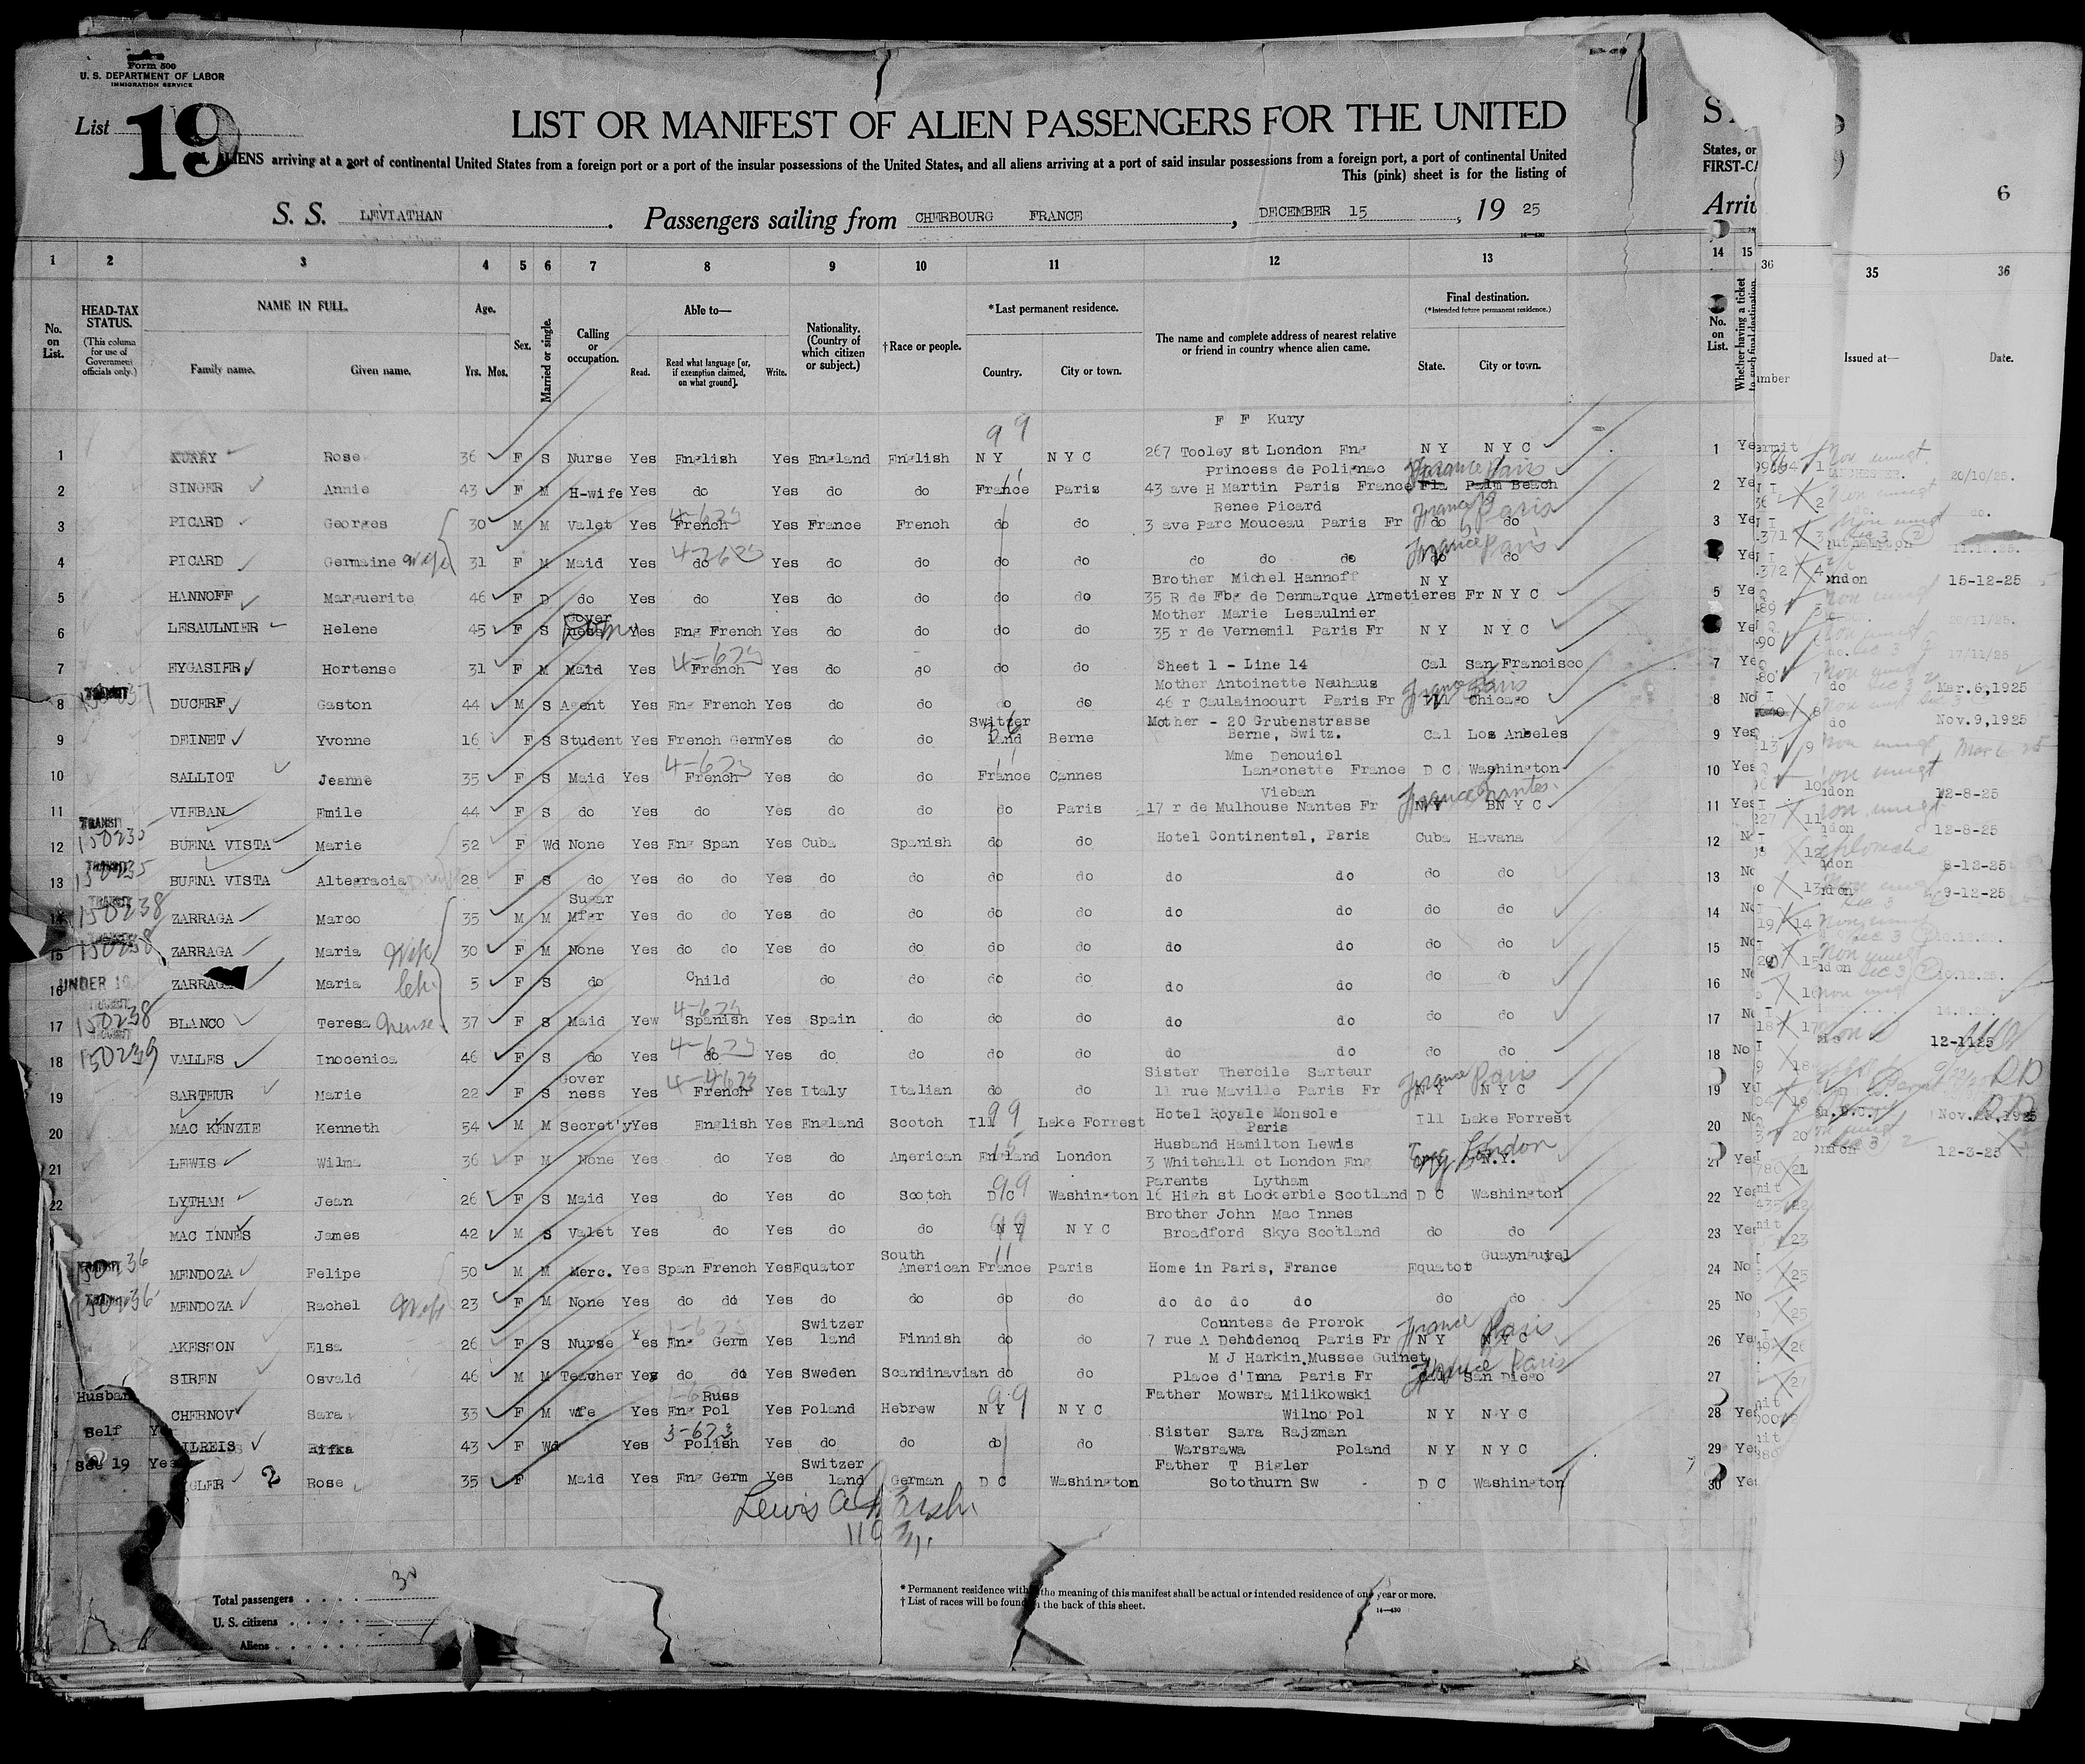 Form 500
U. S. DEPARTMENT OF LABOR
IMMIGRATION SERVICE
List 19
LIST OR MANIFEST OF ALIEN PASSENGERS FOR THE UNITED
ALIENS arriving at a port of continental United States from a foreign port or a port of the insular possessions of the United States, and all aliens arriving at a port of said insular possessions from a foreign port, a port of continental United
This (pink) sheet is for the listing of
States, or
FIRST-CA
S. S. LEVIATHAN. Passengers sailing from CHERBOURG FRANCE, DECEMBER 15, 19 25
Arriv
6
1 2 3 4 5 6 7 8 9 10 11 12 13 14 15 36 35 36
No. on List.
HEAD-TAX STATUS.
(This column for use of Government officials only.)
NAME IN FULL.
Family name. Given name.
Age.
Yrs. Mos.
Sex.
Married or single.
Calling or occupation.
Able to—
Read. Read what language [or, if exemption claimed, on what ground]. Write.
Nationality. (Country of which citizen or subject.)
†Race or people.
*Last permanent residence.
Country. City or town.
The name and complete address of nearest relative or friend in country whence alien came.
Final destination.
(*Intended future permanent residence.)
State. City or town.
No. on List.
Whether having a ticket to such final destination.
Issued at— Date.
99 F F Kury
1 KURRY Rose 36 F S Nurse Yes English Yes England English N Y N Y C 267 Tooley st London Eng N Y N Y C 1 Ye
Princess de Polignac France Paris
2 SINGER Annie 43 F M H-wife Yes do Yes do do France Paris 43 ave H Martin Paris France Fla Palm Beach 2 Ye 20/10/25.
4-623 Renee Picard France Paris
3 PICARD Georges 30 M M Valet Yes French Yes France French do do 3 ave Parc Mouceau Paris Fr do do 3 Ye do.
4-2623 France Paris
4 PICARD Germaine wife 31 F M Maid Yes do Yes do do do do do do do do do Ye
Brother Michel Hannoff N Y
5 HANNOFF Marguerite 46 F D do Yes do Yes do do do do 35 R de Fbg de Denmarque Armetieres Fr N Y C 5 Ye ondon 15-12-25
Gover Mother Marie Lesaulnier
6 LESAULNIER Helene 45 F S ness Yes Eng French Yes do do do do 35 r de Vernemil Paris Fr N Y N Y C Ye
4-623
7 EYGASIER Hortense 31 F M Maid Yes French Yes do do do do Sheet 1 - Line 14 Cal San Francisco 7 Ye 17/11/25
TRANSIT Mother Antoinette Neuhaus France Paris
8 DUCERF Gaston 44 M S Agent Yes Eng French Yes do do do do 46 r Caulaincourt Paris Fr Chicago 8 No do Mar.6,1925
Switzer Mother - 20 Grubenstrasse
9 DEINET Yvonne 16 F S Student Yes French Germ Yes do do land Berne Berne, Switz. Cal Los Anbeles 9 Yes do Nov.9,1925
4-623 Mme Denouiol
10 SALLIOT Jeanne 35 F S Maid Yes French Yes do do France Cannes Langonette France D C Washington 10 Yes
Vieban France Nantes
11 VIEBAN Emile 44 F S do Yes do Yes do do do Paris 17 r de Mulhouse Nantes Fr N Y BN Y C 11 Yes 12-8-25
TRANSIT 150235
12 BUENA VISTA Marie 52 F Wd None Yes Eng Span Yes Cuba Spanish do do Hotel Continental, Paris Cuba Havana 12 N 12-8-25
TRANSIT 150235
13 BUENA VISTA Altegracia 28 F S do Yes do do Yes do do do do do do do do 13 No 8-12-25
TRANSIT 150238 Sugar
14 ZARRAGA Marco 35 M M Mfgr Yes do do Yes do do do do do do do do 14 No 9-12-25
150238
15 ZARRAGA Maria wife 30 F M None Yes do do Yes do do do do do do do do 15 No
UNDER 16
16 ZARRAGA Maria ch 5 F S do Child do do do do do do do o 16 No
TRANSIT 150238 4-623
17 BLANCO Teresa nurse 37 F S Maid Yew Spanish Yes Spain do do do do do do do 17 No
TRANSIT 150239 4-623
18 VALLES Inocenica 46 F S do Yes do Yes do do do do do do do do 18 No 12-1125
Gover 4-4623 Sister Thercile Sarteur France Paris
19 SARTEUR Marie 22 F S ness Yes French Yes Italy Italian do do 11 rue Maville Paris Fr N Y N Y C 19 Y
99 Hotel Royale Monsole
20 MAC KENZIE Kenneth 54 M M Secret'y Yes English Yes England Scotch Ill Lake Forrest Paris Ill Lake Forrest 20 No
15 Husband Hamilton Lewis Eng London
21 LEWIS Wilma 36 F M None Yes do Yes do American England London 3 Whitehall ct London Eng N.Y. 21 Yes 12-3-25
99 Parents Lytham
22 LYTHAM Jean 26 F S Maid Yes do Yes do Scotch D C Washington 16 High st Lockerbie Scotland D C Washington 22 Yes
99 Brother John Mac Innes
23 MAC INNES James 42 M S Valet Yes do Yes do do N Y N Y C Broadford Skye Scotland do do 23 Yes
150236 South 11 Guaynquiel
24 MENDOZA Felipe 50 M M Merc. Yes Span French Yes Equator American France Paris Home in Paris, France Equator 24 No
150236
25 MENDOZA Rachel wife 23 F M None Yes do do Yes do do do do do do do do do do 25 No
Switzer Countess de Prorok France Paris
AKESSON Elsa 26 F S Nurse Yes Eng Germ Yes land Finnish do do 7 rue A Dehodencq Paris Fr N Y N Y C 26 Yes
M J Harkin Mussee Guinet France Paris
SIREN Osvald 46 M M Teacher Yes do do Yes Sweden Scandinavian do do Place d'Inna Paris Fr San Diego 27
Husban Russ 99 Father Mowsra Milikowski
CHERNOV Sara 33 F M wfe Yes Eng Pol Yes Poland Hebrew N Y N Y C Wilno Pol N Y N Y C 28 Yes
Self Y 3-623 Sister Sara Rajzman
ILREIS Rifka 43 F Wd Yes Polish Yes do do do do Warsrawa Poland N Y N Y C 29 Yes
See 19 Yes Switzer Father T Bigler
GLER 2 Rose 35 F Maid Yes Eng Germ Yes land German D C Washington Sotothurn Sw D C Washington 30 Yes
Lewis
Total passengers 30
U. S. citizens
Aliens
* Permanent residence with the meaning of this manifest shall be actual or intended residence of one year or more.
† List of races will be found the back of this sheet.
14—430